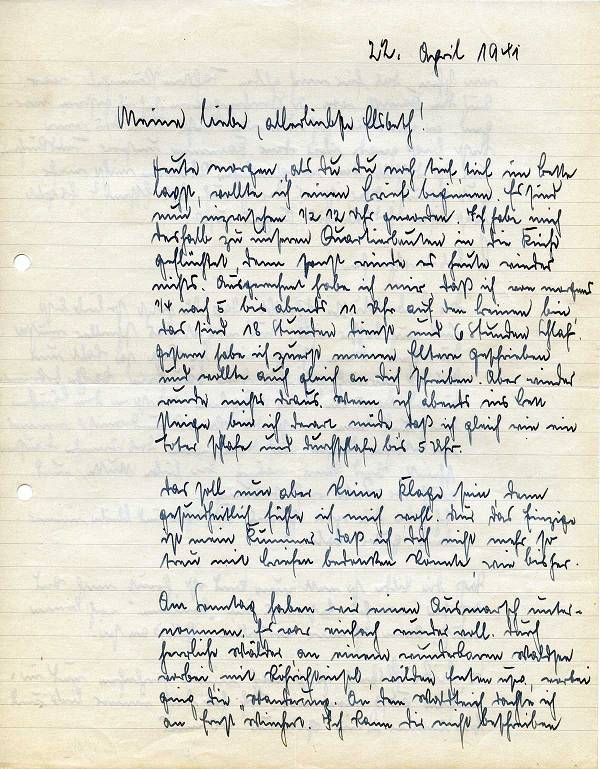 22. April 1941
Meine liebe, allerliebste Elsbeth!
Heute morgen, als Du Du noch tief, tief im Bette
lagst, wollte ich einen Brief beginnen. Es sind
nun inzwischen 1/2 12 Uhr geworden. Ich habe mich
deshalb zu unseren Quartierleuten in die Küche
geflüchtet, denn sonst würde es heute wieder
nichts. Ausgerechnet habe ich mir, daß ich von morgens
1/4 nach 5 bis abends 11 Uhr auf den Beinen bin,
das sind 18 Stunden Dienst und 6 Stunden Schlaf.
Gestern habe ich zuerst meinen Eltern geschrieben
und wollte auch gleich an Dich schreiben. Aber wieder
wurde nichts draus. Wenn ich abends ins Bett
steige bin ich derart müde daß ich gleich wie ein
Toter schlafe und durchschlafe bis 5 Uhr.
Das soll nun aber keine Klage sein, denn
gesundheitlich fühle ich mich wohl. Nur das Einzige
ist mein Kummer daß ich Dich nicht mehr so
treu mit Briefen bedenken konnte, wie bisher.
Am Sonntag haben wir einen Ausmarsch unter-
nommen. Es war einfach wundervoll. Durch
herrliche Wälder, an einem wunderbaren Waldsee
vorbei mit wilden Enten usw. vorbei
ging die Wanderung. An dem dachte ich
an Ernst Wiechert. Ich kann Dir nicht beschreiben